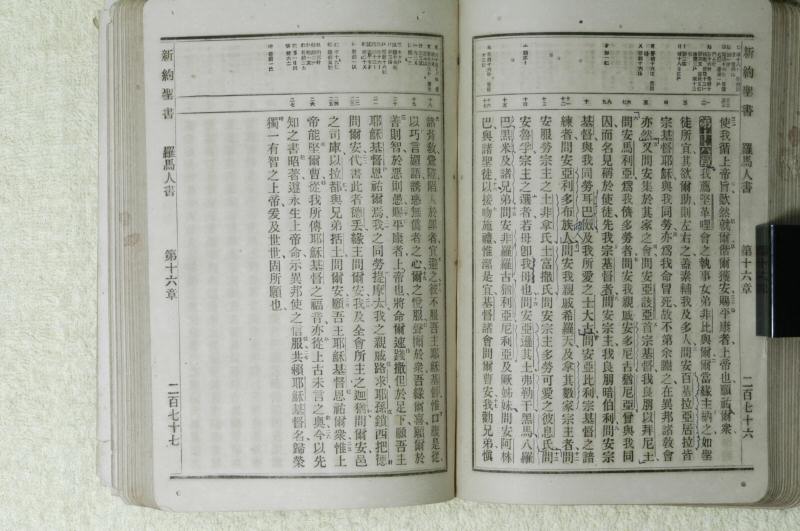 新約聖書 羅馬人書 第十六章 二百七十六
使我循上帝旨歡然就爾偕爾獲安賜平康者上帝也願祐爾衆
第十六章我薦堅革哩會之執事女弟非比與爾爾當緣主納之如聖
徒所宜其欲爾助則左右之蓋素輔我及多人問安百基拉亞居拉皆
宗基督耶穌與我同勞亦爲我命冒死故不第余謝之在異邦諸教會
亦然又問安集於其家之會問安亞該亞首宗基督我良朋以拜尼土
問安馬利亞爲我儕多勞者問安我親戚安多尼古猶尼亞曾與我同
囚而名見稱於使徒先我宗基督者問安宗主我良朋暗伯利問安宗
基督與我同勞耳巴奴及我所愛之士大古問安亞比利宗基督之諳
練者問安亞利多布族人問安我親戚希羅天及拿其數家宗主者問
安服勞宗主之土非拿氏土富撒氏問安宗主多勞可愛之彼息氏問
安魯孚宗主之選者若母卽我母也問安亞遜其土弗勒干黑馬八羅
巴黑米及諸兄弟問安非羅羅古猶利亞尼利亞及厥姊妹問安阿林
巴與諸聖徒以接吻施禮惟潔是宜基督諸會問爾曹安我勸兄弟愼
新約聖書 羅馬人書 第十六章 二百七十七
諸背敎釁陷人於罪者宜遠之彼不服吾主耶穌基督惟口腹是從
以巧言諂語誘惑無僞者之心爾之悅服聲聞於衆吾緣爾喜願爾於
善則智於惡則愚賜平康者上帝也將命爾速踐撒但於足下願吾主
耶穌基督恩祐爾焉我之同勞提摩太我之親戚路求耶孫鎖西把德
問爾安代書此者德丟緣主問爾安我及全會所主之迦猶問爾安邑
之司庫以拉都與兄弟括土問爾安願吾主耶穌基督恩祐爾衆惟上
帝能堅爾曹從我所傳耶穌基督之福音亦從上古未言之奧今以先
知之書昭著遵永生上帝命示異邦使之信服共賴耶穌基督名歸榮
獨一有智之上帝爰及世世固所願也